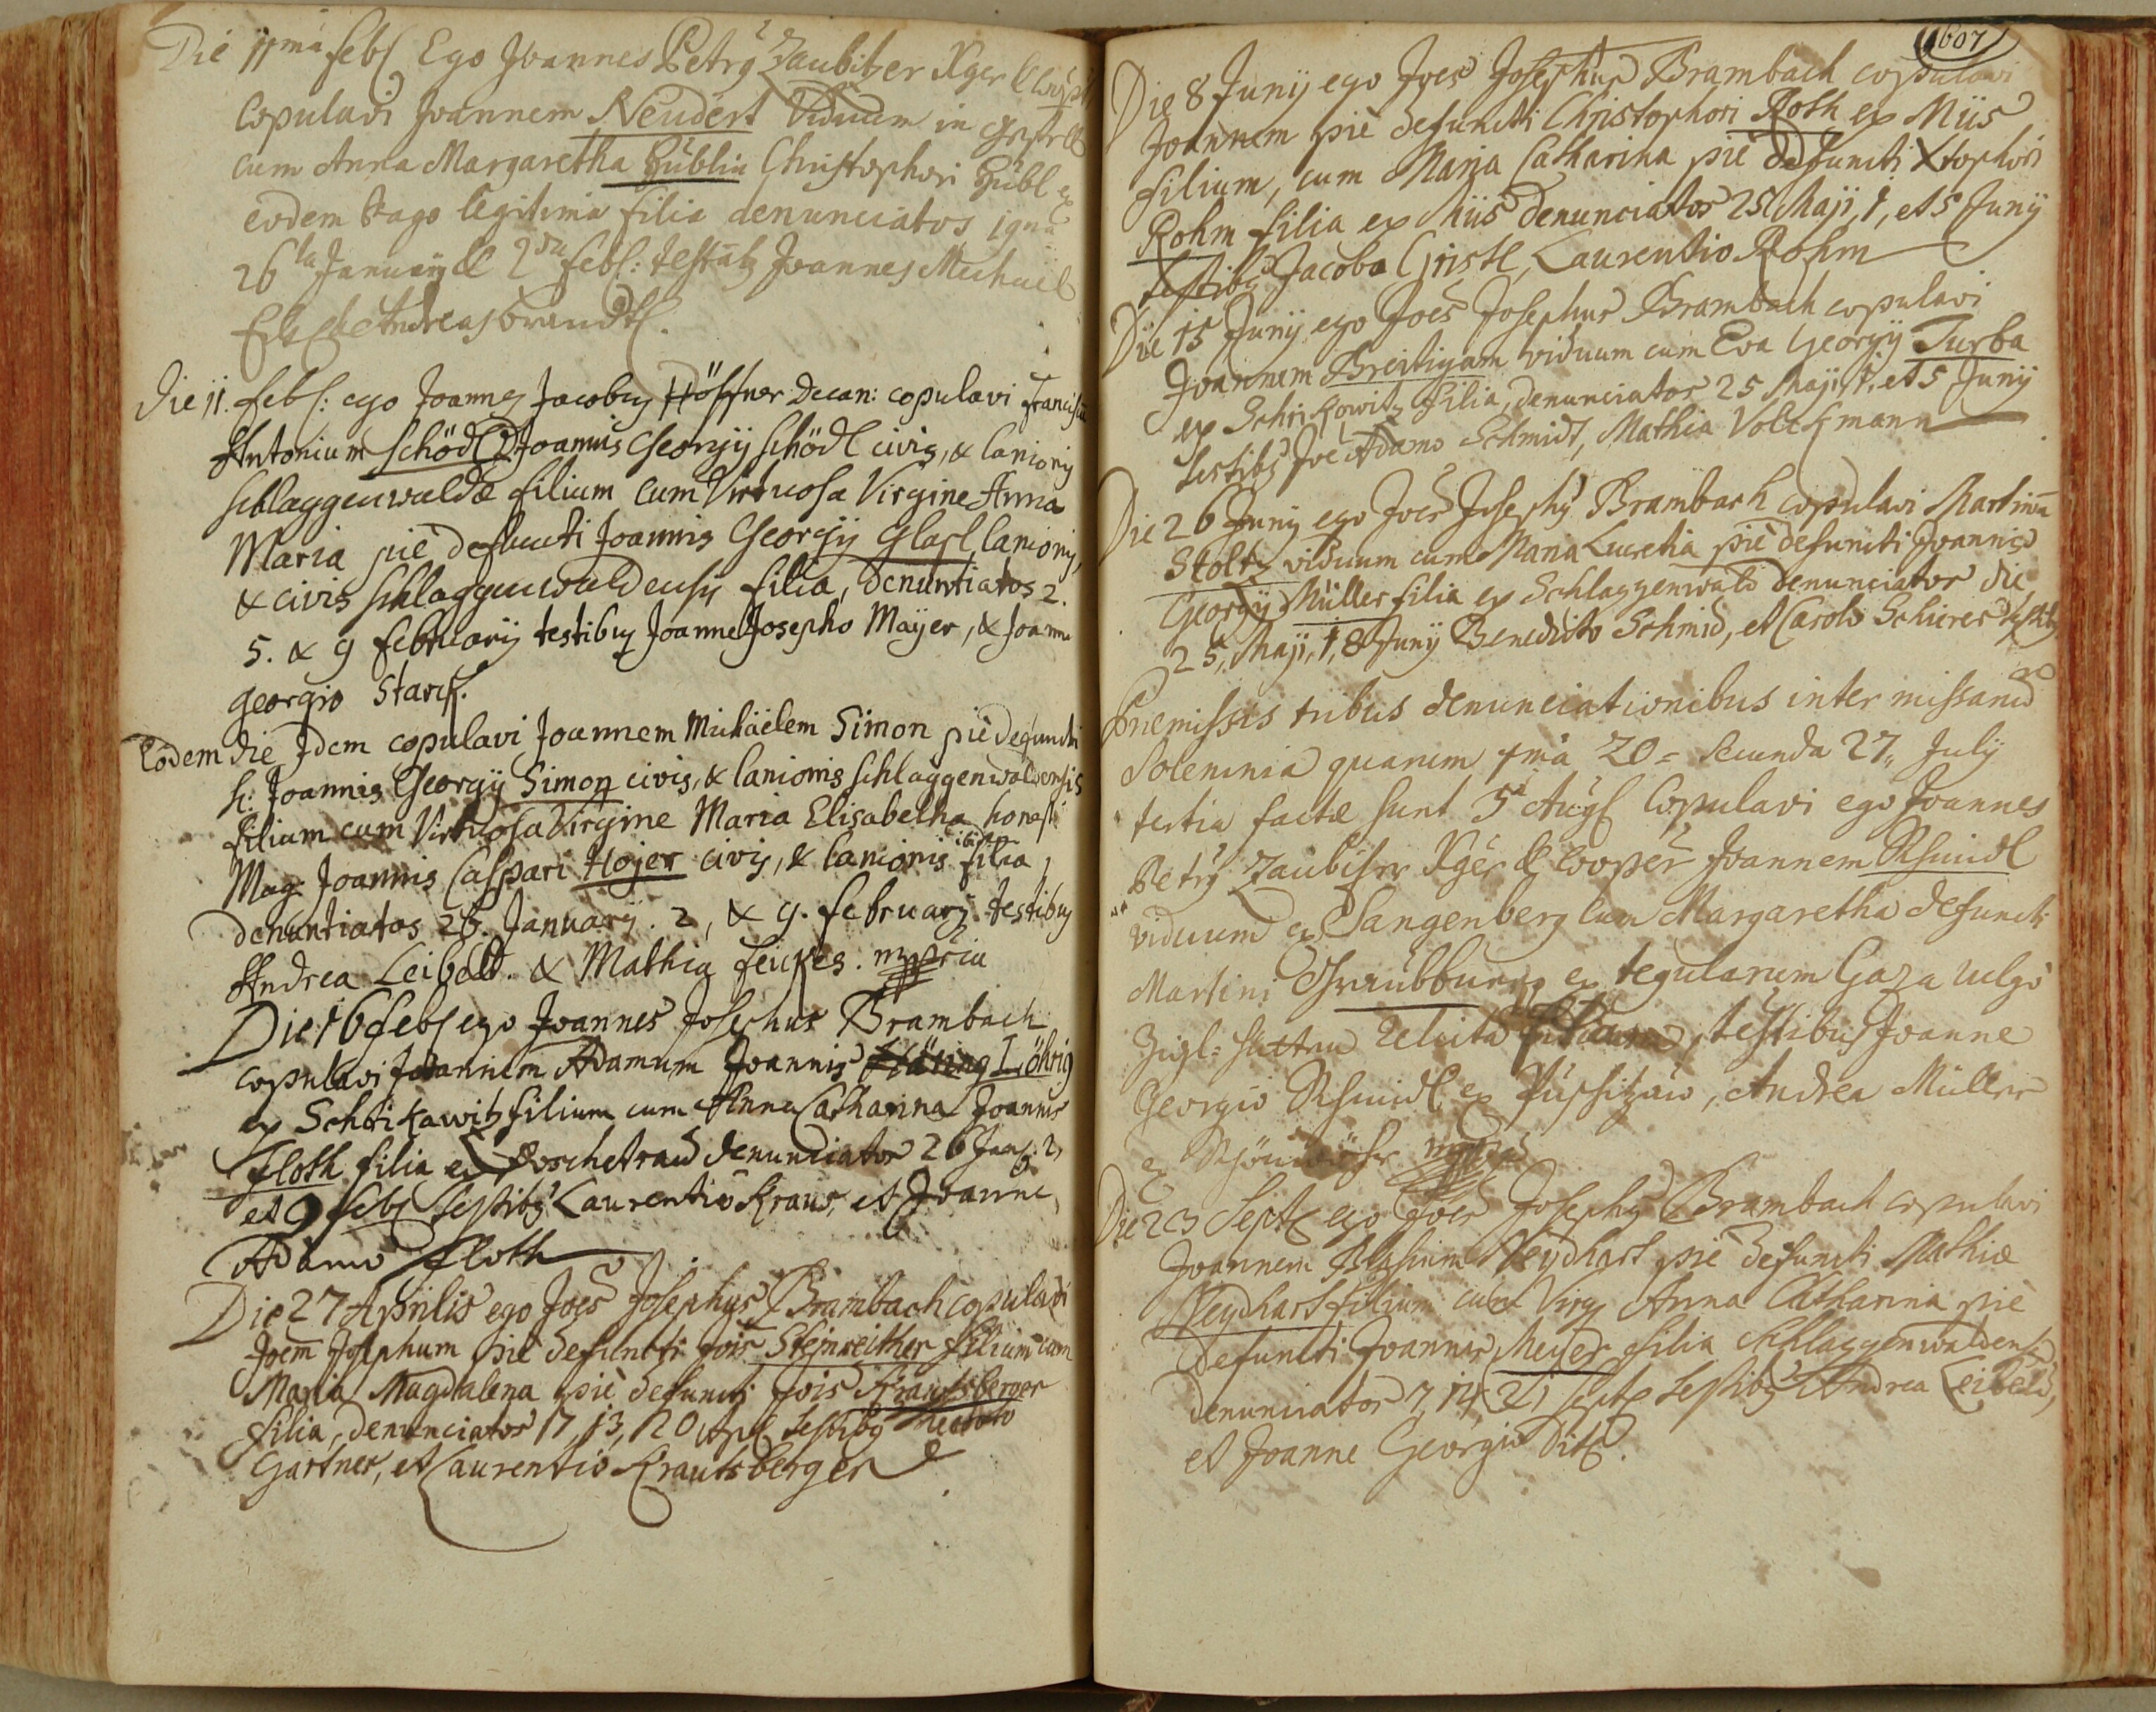 Die 11ma feb Ego Joannes Petrg Zaubitzer Xger
Copulavi Joannem Neudert Viduum in
cum Anna Margaretha Hüblin Christophori Hübl ex
eodem Pago legitima filia denunciatos
26ta January & 2da feb: Joannes Michael
Andreas brandtl.
Die 11. feb: ego Joanneg Jacobug Höffner Decan: copulavi
Antonium Schödl Joannis Georgij Schödl civis, & lanionig
schlaggenwaldæ filium cum Virtuosa Virgine Anna
Maria pie defuncti Joannis Georgij Glasl lanionig,
& civis schlaggenwaldensis filia, denuntiatos 2.
5. & 9 februarij testibug Joanne Josepho Mayer, & Joanne
georgio Starck.
Eodem die Idem copulavi Joannem Michäelem Simon pie defuncti
h: Joannis Georgij Simon civis, & lanionis schlaggenwaldensis
filium cum Virtuosa Virgine Maria Elisabetha honesti
Mag. Joannis Caspari Hojer civis, & lanionis ibidem filia,
denuntiatos 26. January. 2, & 9. february. testibug
Andrea Leibeld. & Mathia feickes. mppria
Die 16 feb ego Joannes Josephus Brambach
copulavi Joannem Adamum Joannis Löhrig
ex Schrikawitz filium cum Anna Catharina Joannis
Floth filia ex Poschetrau denunciatos 26 Jan: 2,
et 9 feb testibg Laurentio Kraus, et Joanne
Adamo Floth
Die 27 Aprilis ego Joes Josephus Brambach copulavi
Joem Josephum pie defuncti Jois Steinreither filium cum
Maria Magdalena pie defuncti Jois Krautsberger
filia, denunciatos 17, 13, 20 Apl testibg
Gartner, et Laurentio Krautsberger
607
Die 8 Junij ego Joes Josephus Brambach copulavi
Joannem pie defuncti Christophori Roth ex Miis
filium, cum Maria Catharina pie defuncti Xtophori
Rohm filia ex Miis denunciatos 25 Maji, 1, et 5 Junij
testibg Jacobo Christl, Laurentio Rohm
Die 15 Junij ego Joes Josephus Brambach copulavi
Joannem Breitigam viduum cum Eva Georgij Turba
ex Schrikowitz filia, denunciatos 25 Maji, 1, et 5 Junij
testibg Joe Adamo Schmidt, Mathia Volckmann
Die 26 Junij ego Joes Josephg Brambach copulavi Martinū
Stoltz viduum cum Maria Lucretia pie defuncti Joannis
Georgij Müller filia ex Schlaggenwald denunciatos die
25, Maji, 1, 8 Junij Benedicto Schmid, et Carolo Schierer testibg
Præmissis tribus denunciationibus inter missarum
Solemnia quarum 1ma 20 = Secunda 27,, July
tertia factæ sunt 3a Aug Copulavi ego Joannes
Petrg Zaubitzer Xger & Cooper Joannem Schmidl
viduum ex Sangenberg cum Margaretha defuncti
Martini ex tegularum Gaza vulgo
Zigl=hütten relicta testibus Joanne
Georgio Schmidl ex, Andrea Müller
ex mppria
Die 23 Sept ego Joes Josephg Brambach copulavi
Joannem Blasium Neydhart pie defuncti Mathiæ
Neydhart filium cum Virg Anna Catharina pie
defuncti Joannis Meyer filia Schlaggenwaldens
denunciatos 7, 14, 21 Sept testibg Andrea Leibeld,
et Joanne Georgio Ditl.